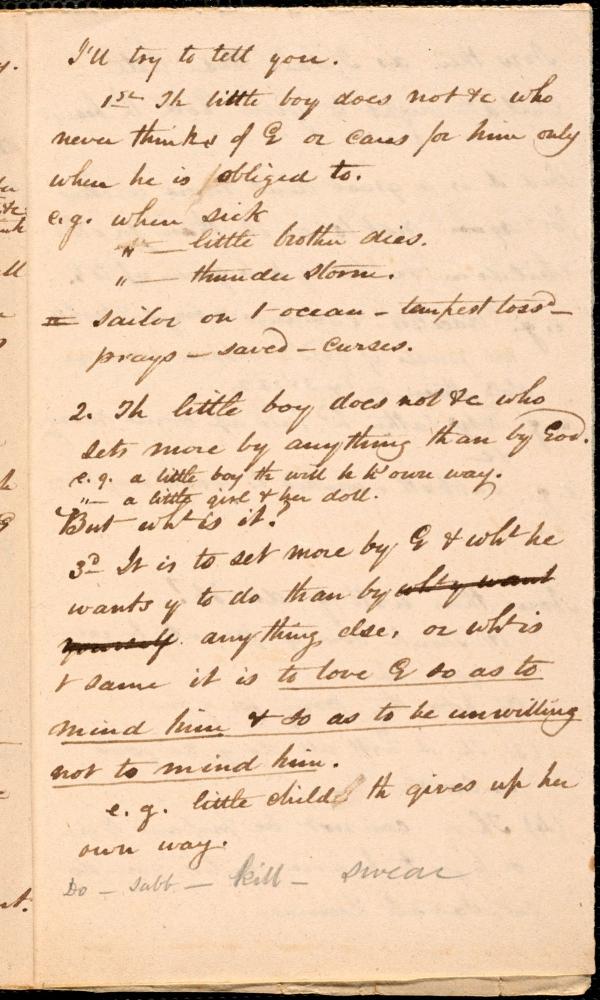 I'll try to tell you.
1st Th little boy does not &c who
never thinks of G or cares for him only
when he is obliged to.
e.g. when sick
" — little brother dies.
" — thunder storm.
= sailor on t ocean – tempest toss'd –
prays – saved – curses.
2. Th little boy does not &c who
sets more by anything than by God.
e.g. a little boy th will h h' own way.
" — a little girl & her doll.
But wht is it?
3d It is to set more by G & wht he
wants y to do than by wht y want
yourself. anything else, or wht is
t same it is to love G so as to
mind him & so as to be unwilling
not to mind him.
e.g. little child th gives up her
own way.
Do – sabb – kill – swear